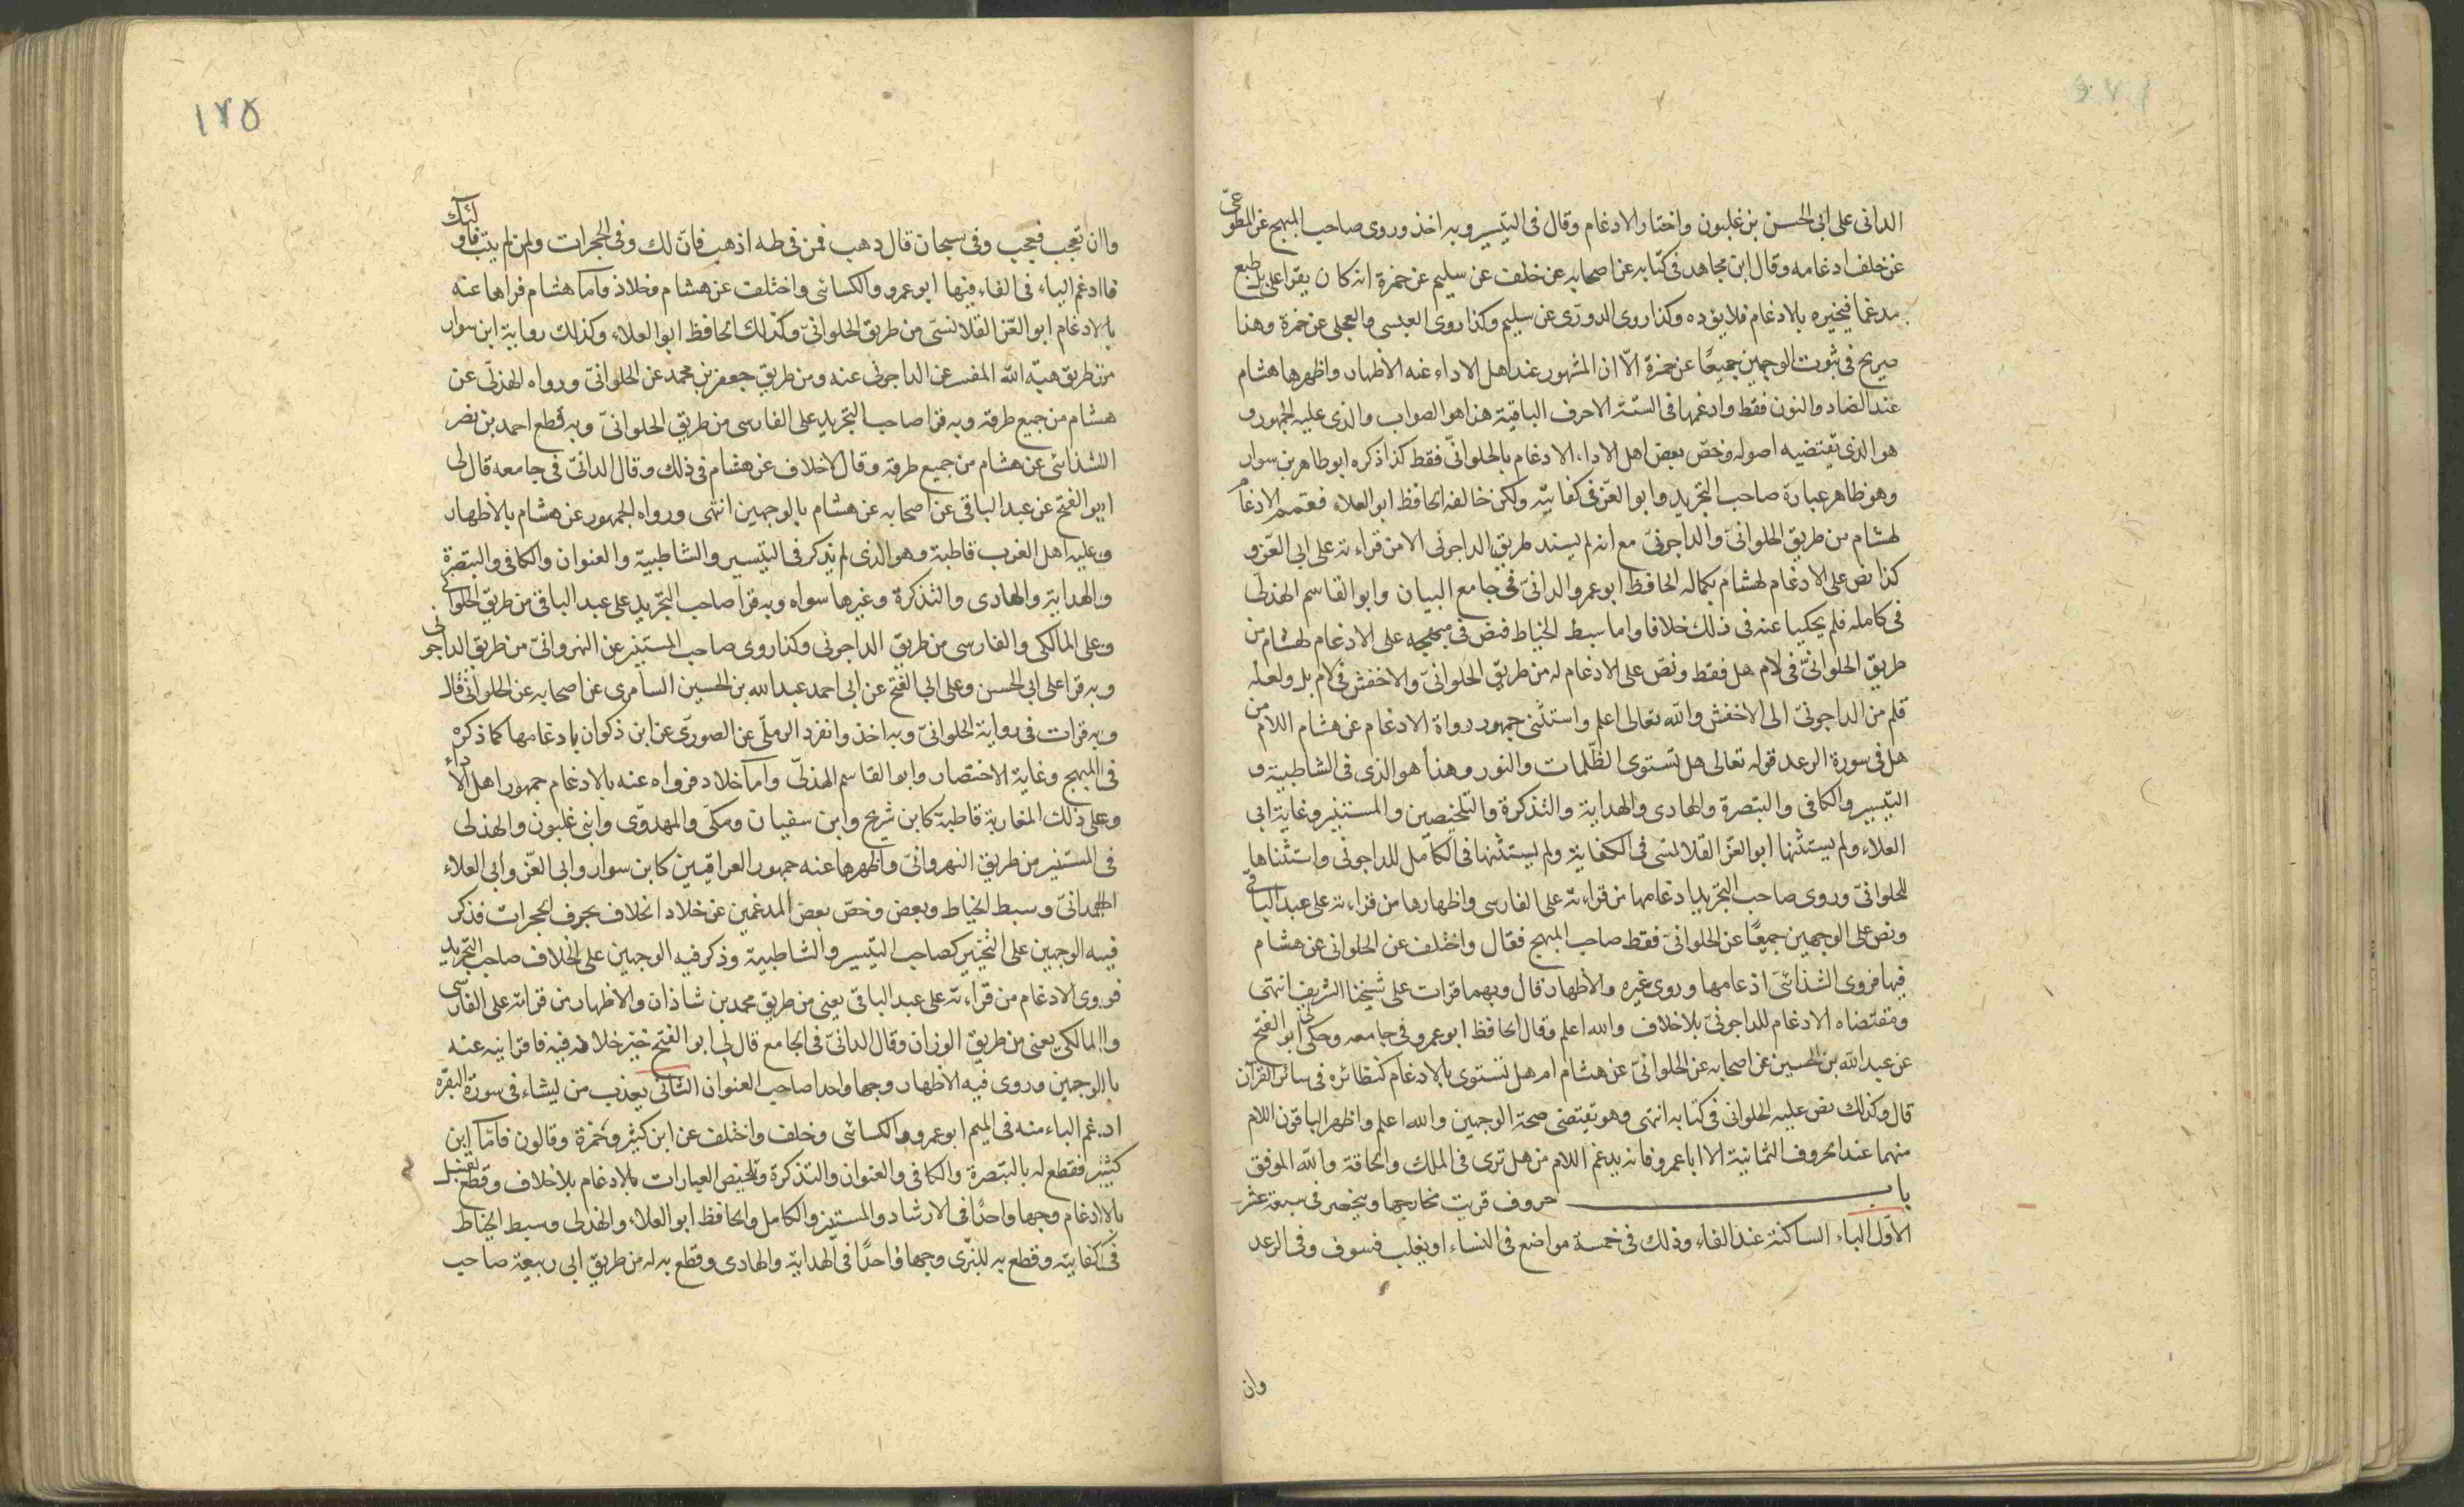 الدانى على ابى الحسن بن غلبون واختا والادغام وقال فى التيسير وبه اخذ وروى صاحب المبهج عن المطوعى
عن خلف ادغامه وقال ابن مجاهد فى كتابه عن اصحابه عن خلف عن سليم عن حمزة انه كان يقرا على بل طبع
مدغما فيخيره بالادغام فلا يرده وكذا روى الدورى عن سليم وكذا روى العبسى والعجلى عن حمزة وهذا
صريح فى ثبوت الوجهين جميعًا عن حمزة الّا ان المشهور عند اهل الاداء عنه الاظهار واظهرها هشام
عند الضاد والنون فقط وادغمها فى الستة الاحرف الباقية هذا هو الصواب والذى عليه الجمهور و
هو الذى تقتضيه اصوله وخصّ بعض اهل الاداء الادغام بالحلوانىّ فقط كذا ذكره ابو طاهر بن سوار
وهو ظاهر عبارة صاحب التجريد وابو العزّ فى كفايته ولكن خالفه الحافظ ابو العلاء فعمم الادغام
لهشام من طريق الحلوانىّ والداجونىّ مع انه لم يسند طريق الداجونى الا من قراءته على ابى العزّ و
كذا نص على الادغام لهشام بكماله الحافظ ابو عمرو الدانىّ فى جامع البيان وابو القاسم الهذلى
فى كامله فلم يحكيا عنه فى ذلك خلافا واما سبط الخياط فنص فى مبهجه على الادغام لهشام من
طريق الحلوانىّ فى لام هل فقط ونصّ على الادغام له من طريق الحلوانىّ والاخفش فى لام بل ولعله
قلم من الداجونىّ الى الاخفش والله تعالى اعلم واستثنى جمهور رواة الادغام عن هشام اللام من
هل فى سورة الرعد قوله تعالى هل تستوى الظّلمات والنور وهذا هو الذى فى الشاطبية و
التيسير والكافى والتبصرة والهادى والهداية والتذكرة والتلخيصين والمستنير وغاية ابى
العلاء ولم يستثنها ابو العزّ القلانسى فى الكفاية ولم يستثنها فى الكامل للداجونى واستثناها
للحلوانىّ وروى صاحب التجريد ادغامها من قراءته على الفارسى واظهارها من قراءته على عبد الباقى
ونص على الوجهين جميعًا عن الحلوانىّ فقط صاحب المبهج فقال واختلف عن الحلوانى عن هشام
فيها فروى الشذائىّ ادغامها وروى غيره الاظهار قال وبهما قرات على شيخنا الشريف انتهى
ومقتضاه الادغام للداجونىّ بلا خلاف والله اعلم وقال الحافظ ابو عمرو فى جامعه وحكى لى ابو الفتح
عن عبد الله بن الحسين عن اصحابه عن الحلوانىّ عن هشام ام هل تستوى بالادغام كنظائره فى سائر القرآن
قال وكذلك نص عليه الحلوانى فى كتابه انتهى وهو يقتضى صحة الوجهين والله اعلم واظهر الباقون اللام
منهما عند الحروف الثمانية الا ابا عمرو فانه يدغم اللام من هل ترى فى الملك والحاقة والله الموفق
باب حروف قربت مخارجها وينحصر فى سبعة عشر
الاوّل الباء الساكنة عند الفاء وذلك فى خمسة مواضع فى النساء او يغلب فسوف وفى الرعد
وان
١٢٥
وان تعجب فعجب وفى سبحان قال ذهب فمن فى طه اذهب فانّ لك وفى الحجرات ولمن لم يتب فاولئك
فادغم الباء فى الفاء فيها ابو عمرو والكسائى واختلف عن هشام وخلاد فاما هشام فراها عنه
بالادغام ابو العّز القلانسى من طريق الحلوانىّ وكذلك الحافظ ابو العلاء وكذلك رواية ابن سوار
من طريق هبة الله المفسر عن الداجونى عنه ومن طريق جعفر بن محمد عن الحلوانىّ ورواه الهذلى عن
هشام من جميع طرقه وبه قرا صاحب التجريد على الفارسى من طريق الحلوانىّ وبه قطع احمد بن نصر
الشذائى عن هشام من جميع طرقه وقال لا خلاف عن هشام فى ذلك وقال الدانىّ فى جامعه قال لى
ابو الفتح عن عبد الباقى عن اصحابه عن هشام بالوجهين انتهى ورواه الجمهور عن هشام بالاظهار
وعليه اهل الغرب قاطبة وهو الذى لم يذكر فى التيسير والشاطبية والعنوان والكافى والتبصرة
والهداية والهادى والتذكرة وغيرها سواه وبه قرا صاحب التجريد على عبد الباقى من طريق الحلوانى
وعلى المالكى والفارسى من طريق الداجونى وكذا روى صاحب المستنير عن النهروانىّ من طريق الداجونى
وبه قرا على ابى الحسن وعلى ابى الفتح عن ابى احمد عبد الله بن الحسين السامرى عن اصحابه عن الحلوانى قال
وبه قرات فى رواية الحلوانىّ وبه اخذ وانفرد الرملى عن الصورىّ عن ابن ذكوان بادغامها كما ذكره
فى المبهج وغاية الاختصار وابو القاسم الهذلىّ وامّا خلاد فرواه عنه بالادغام جمهور اهل الاداء
وعلى ذلك المغاربة قاطبة كابن شريح وابن سفيان ومكى والمهدوّى وابنى غلبون والهذلى
فى المستنير من طريق النهروانىّ واظهرها عنه جمهور العراقيين كابن سوار وابى العّز وابى العلاء
الهمدانىّ وسبط الخياط وبعض وخصّ بعض المدغمين عن خلاد الخلاف بحرف الحجرات فذكر
فيه الوجهين على التخيير كصاحب التيسير والشاطبية وذكر فيه الوجهين على الخلاف صاحب التجريد
فروى الادغام من قراءته على عبد الباقى يعنى من طريق محمد بن شاذان والاظهار من قراته على الفارسى
والمالكى يعنى من طريق الوزان وقال الدانىّ فى الجامع قال لى ابو الفتح خيّر خلاد فيه فاقرانيه عنه
بالوجهين وروى فيه الاظهار وجها واحدا صاحب العنوان الثانى يعذب من يشاء فى سورة البقره
ادغم الباء منه فى الميم ابو عمرو والكسائى وخلف واختلف عن ابن كثير وحمزة وقالون فامّا ابن
كثير فقطع له بالتبصرة والكافى والعنوان والتذكرة وتلخيص العبارات بالادغام بلا خلاف وقطع لقنبل
بالادغام وجها واحدًا فى الارشاد والمستنير والكامل والحافظ ابو العلاء والهذلى وسبط الخياط
فى كفايته وقطع به للبزّى وجها واحدًا فى الهداية والهادى وقطع به له من طريق ابى ربيعة صاحب